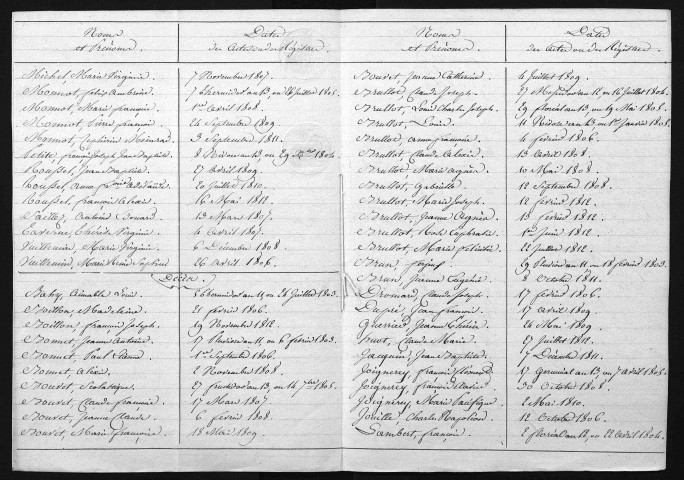 Noms et Prénoms.
Dates des Actes ou des Registres.
Michel, Marie Virginie. 7 Novembre 1807.
Monnot, Félix Ambroise. 7 thermidor an 13, ou 26 Juillet 1805.
Monnot, Marie françoise. 1er Avril 1808.
Monnot, Pierre françois. 24 Septembre 1809.
Monnot, Zéphirin 3 Septembre 1811.
Petite, françois Joseph Jean Baptiste. 8 Nivose an 13, ou 29 Xbre 1804.
Roussel, Jean Baptiste. 27 Avril 1809.
Roussel, anne 20 Juillet 1810.
Roussel, françois Alexis. 16 Mai 1812.
Antoine Edouard. 13 Mars 1807.
Taverne, Thérèse Virginie. 4 Avril 1807.
Vuillemin, Marie Virginie. 6 Décembre 1808.
Vuillemin, Marie 26 Avril 1806.
Décès.
Baby, Aimable Louis. thermidor an 11, ou 26 Juillet 1803.
Boillon, Madeleine. 21 février 1806.
Boillon, françois Joseph. 29 Novembre 1812.
Bonnet, Jeanne Antoine. 17 Pluviose an 11, ou 6 février 1803.
Bonnet, Paul 1er Septembre 1806.
Bonnet, Alexis. 2 Novembre 1808.
Boudet, Scolastique. 27 fructidor an 13, ou 14 7bre 1805.
Bouvet, Claude françoise. 17 Mars 1807.
Bouvet, Jeanne Claude. 6 février 1808.
Bouvet, Marie françoise. 18 Mai 1809.
Noms et Prénoms.
Dates des Actes ou des Registres.
Bouvet, Jeanne Catherine. 4 Juillet 1809.
Brullot, Claude Joseph. 27 Messidor an 12, ou 16 Juillet 1804.
Brullot, Louis Charles Joseph. 29 floréal an 13, ou 19 Mai 1805.
Brullot, Louis. 11 Nivose an 13, ou 1er Janvier 1805.
Brullot, anne françoise. 4 février 1806.
Brullot, Claude Alexis. 13 Avril 1808.
Brullot, Marie Agnès. 10 Mai 1808.
Brullot, Gabrielle. 12 Septembre 1808.
Brullot, Marie Joseph. 12 février 1812.
Brullot, Jeanne Agnès. 13 février 1812.
Brullot, Euphrasie. 1er Juin 1812.
Brullot, Marie félicité. 22 Juillet 1812.
Brun, Joseph. 29 Pluviose an 11, ou 18 février 1803.
Brun, Jeanne Eugénie. 8 Octobre 1811.
Drouard, Claude Joseph. 17 février 1806.
Dupré, Jean françois. 17 Avril 1809.
Guerrier, Jeanne Thérèse. 26 Mai 1809.
Claude Marie. 27 Juillet 1812.
Jacquin, Jean Baptiste. 7 Décembre 1811.
Joignerey, françois 17 Germinal an 13, ou 7 Avril 1805.
Joignerey, françois 30 Octobre 1808.
Joignerey, Marie 2 Mai 1810.
Jouille, Charles Napoléon. 12 Octobre 1806.
Lambert, françois. 2 floréal an 12, ou 22 Avril 1804.